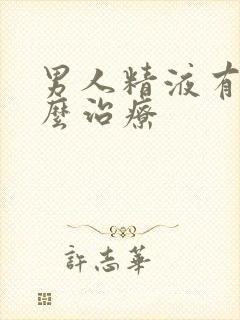 男人精液有
麼治療
許志華